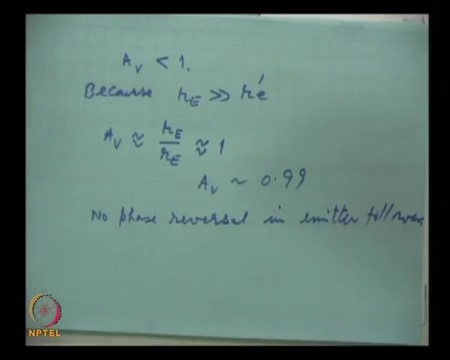 A_v < 1.
Because r_E >> r'e
A_v ≈ r_E / r_E ≈ 1
A_v ~ 0.99
No phase reversal in emitter follower
NPTEL